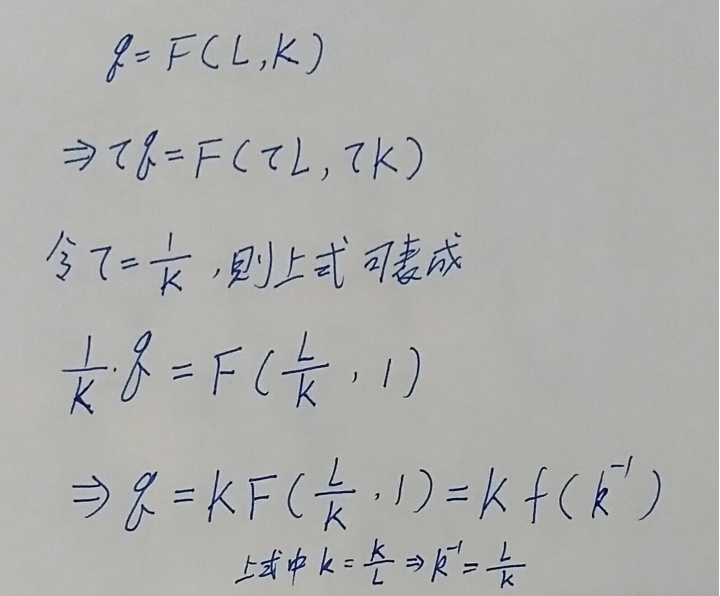 q = F(L, K)
⇒ τq = F(τL, τK)
令 τ = 1/K , 則上式可表成
1/K · q = F(L/K , 1)
⇒ q = K F(L/K , 1) = K f(k⁻¹)
上式中 k = K/L ⇒ k⁻¹ = L/K